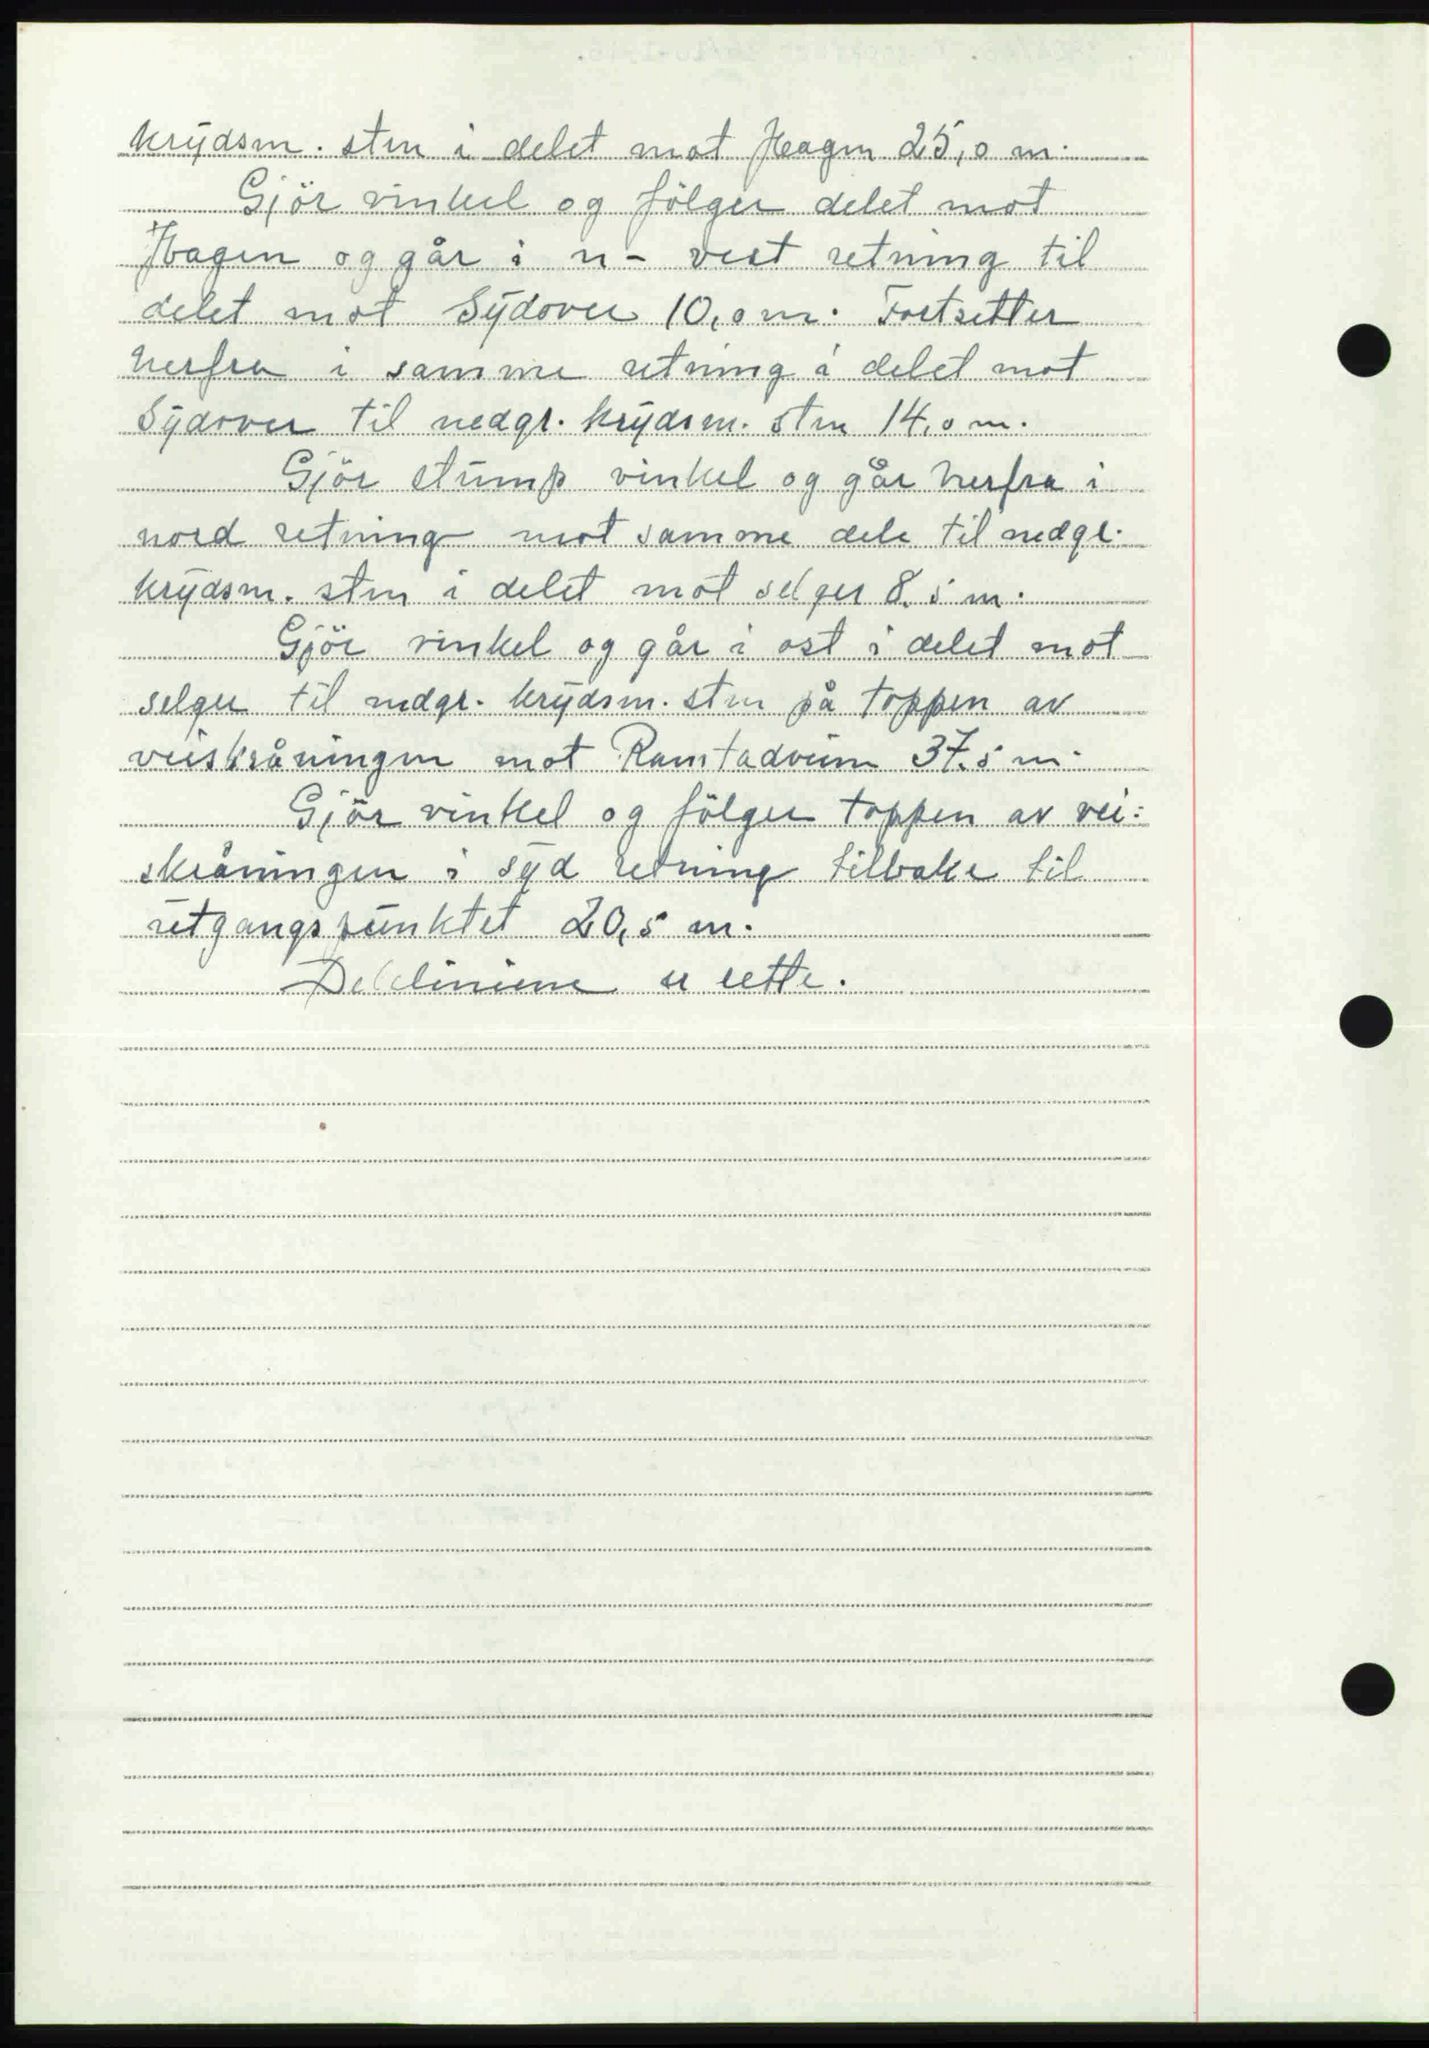 krydsm. sten i delet mot Hagen 25,0 m.
Gjör vinkel og fölger delet mot
Hagen og går i n- vest retning til
delet mot Sydover 10,0 m. Fortsetter
herfra i samme retning i delet mot
Sydover til nedgr. krydsm. sten 14,0 m.
Gjör stump vinkel og går herfra i
nord retning mot samme dele til nedgr.
krydsm. sten i delet mot selger 8.5 m.
Gjör vinkel og går i ost i delet mot
selger til nedgr. krydsm. sten på toppen av
veiskråningen mot Ramstadveien 37.5 m.
Gjör vinkel og fölger toppen av vei:
skråningen i syd retning tilbake til
utgangspunktet 20,5 m.
Deleliniene er rette.